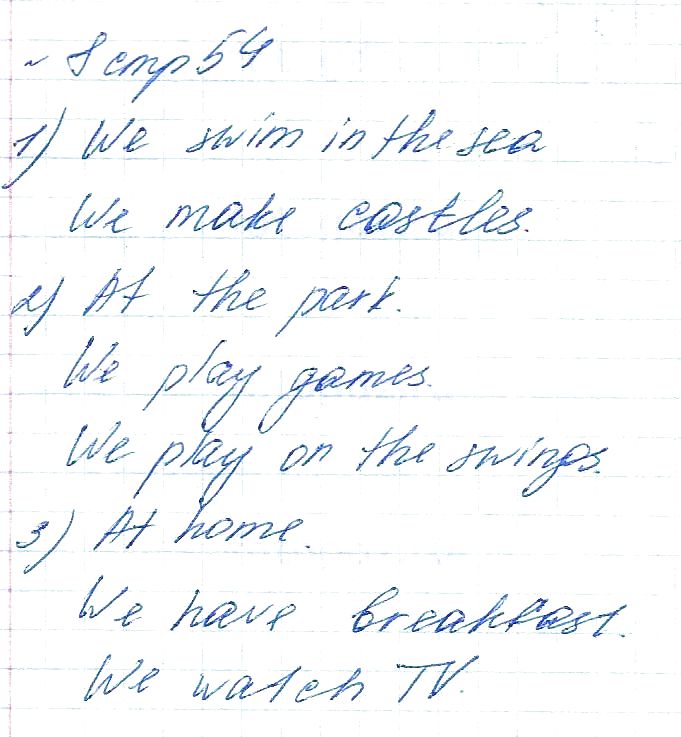 ~ 8 стр 54
1) We swim in the sea
We make castles.
2) At the park.
We play games.
We play on the swings.
3) At home.
We have breakfast.
We watch TV.